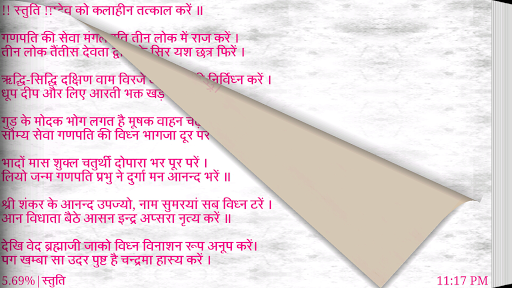 !! स्तुति !! देव को कलाहीन तत्काल करें ॥
गणपति की सेवा मंगल तीन लोक में राज करें ।
तीन लोक तैंतीस देवता सिर यश छत्र फिरें ।
ऋद्धि-सिद्धि दक्षिण वाम विरजे निर्विध्न करें ।
धूप दीप और लिए आरती भक्त
गुड़ के मोदक भोग लगत है मूषक वाहन
सौम्य सेवा गणपति की विध्न भागजा दूर
भादों मास शुक्ल चतुर्थी दोपारा भर पूर परें ।
लियो जन्म गणपति प्रभु ने दुर्गा मन आनन्द भरें ॥
श्री शंकर के आनन्द उपज्यो, नाम सुमरयां सब विध्न टरें ।
आन विधाता बैठे आसन इन्द्र अप्सरा नृत्य करें ॥
देखि वेद ब्रह्माजी जाको विध्न विनाशन रूप अनूप करें।
पग खम्बा सा उदर पुष्ट है चन्द्रमा हास्य करें ।
5.69%|स्तुति 11:17 PM